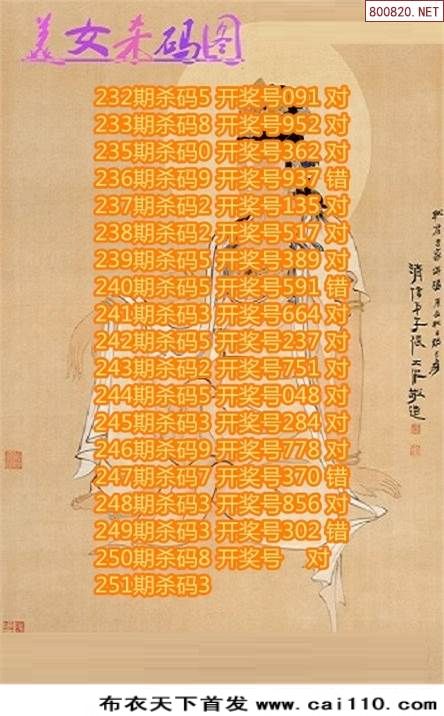 800820.NET
美女杀码图
232期杀码5 开奖号091 对
233期杀码8 开奖号952 对
235期杀码0 开奖号362 对
236期杀码9 开奖号937 错
237期杀码2 开奖号135 对
238期杀码2 开奖号517 对
239期杀码5 开奖号389 对
240期杀码5 开奖号591 错
241期杀码3 开奖号664 对
242期杀码5 开奖号237 对
243期杀码2 开奖号751 对
244期杀码5 开奖号048 对
245期杀码3 开奖号284 对
246期杀码9 开奖号778 对
247期杀码7 开奖号370 错
248期杀码3 开奖号856 对
249期杀码3 开奖号302 错
250期杀码8 开奖号 对
251期杀码3
布衣天下首发 www.cai110.com